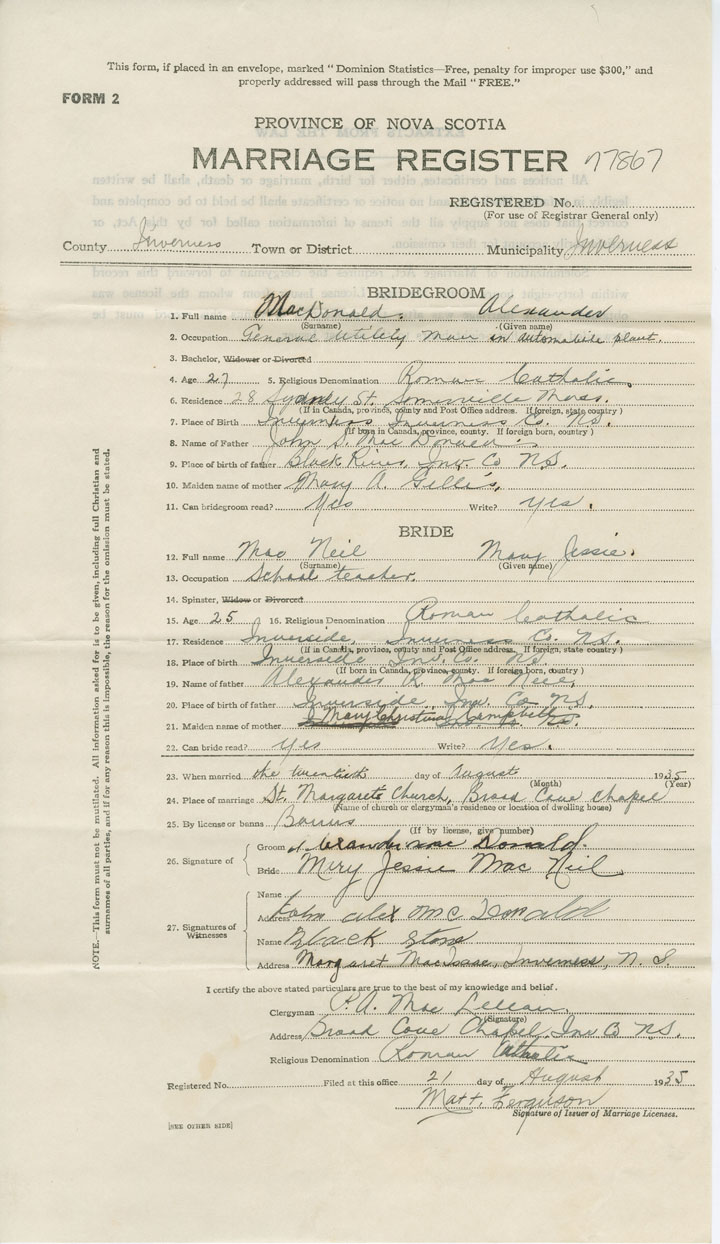 This form, if placed in an envelope, marked "Dominion Statistics—Free, penalty for improper use $300," and
properly addressed will pass through the Mail "FREE."
FORM 2
PROVINCE OF NOVA SCOTIA
MARRIAGE REGISTER 77867
REGISTERED No.
(For use of Registrar General only)
County Inverness Town or District Municipality Inverness
BRIDEGROOM
1. Full name MacDonald. Alexander
(Surname) (Given name)
2. Occupation General Utility Man in automobile plant.
3. Bachelor, Widower or Divorced
4. Age 27 5. Religious Denomination Roman Catholic.
6. Residence 28 Sydney St. Somerville Mass.
(If in Canada, province, county and Post Office address. If foreign, state country)
7. Place of Birth Inverness Inverness Co. N.S.
(If born in Canada, province, county. If foreign born, country)
8. Name of Father John D. Mac Donald
9. Place of birth of father Black River, Inv. Co N.S.
10. Maiden name of mother Mary A. Gillis,
11. Can bridegroom read? Yes Write? Yes.
BRIDE
12. Full name Mac Neil Mary Jessie.
(Surname) (Given name)
13. Occupation School teacher.
14. Spinster, Widow or Divorced
15. Age 25 16. Religious Denomination Roman Catholic
17. Residence Inverside, Inverness Co. N.S.
(If in Canada, province, county and Post Office address. If foreign, state country)
18. Place of birth Inverside Inv. Co. N.S.
(If born in Canada, province, county. If foreign born, country)
19. Name of father Alexander R. Mac Neil,
20. Place of birth of father Inverside, Inv. Co N.S.
21. Maiden name of mother Mary Christina Campbell
22. Can bride read? Yes Write? Yes.
23. When married the twentieth day of August 1935
(Month) (Year)
24. Place of marriage St. Margarets Church, Broad Cove Chapel
(Name of church or clergyman's residence or location of dwelling house)
25. By license or banns Banns
(If by license, give number)
26. Signature of
Groom Alexander Mac Donald.
Bride Mary Jessie Mac Neil
27. Signatures of Witnesses
Name
Address John Alex McDonald
Name Black Stone
Address Margaret MacIsaac, Inverness, N.S.
I certify the above stated particulars are true to the best of my knowledge and belief.
Clergyman R. A. Mac Lellan
(Signature)
Address Broad Cove Chapel, Inv Co N.S.
Religious Denomination Roman Catholic
Registered No. Filed at this office 21 day of August 1935
Matt. Ferguson
Signature of Issuer of Marriage Licenses.
[SEE OTHER SIDE]
NOTE.—This form must not be mutilated. All information asked for is to be given, including full Christian and
surnames of all parties, and if for any reason this is impossible, the reason for the omission must be stated.